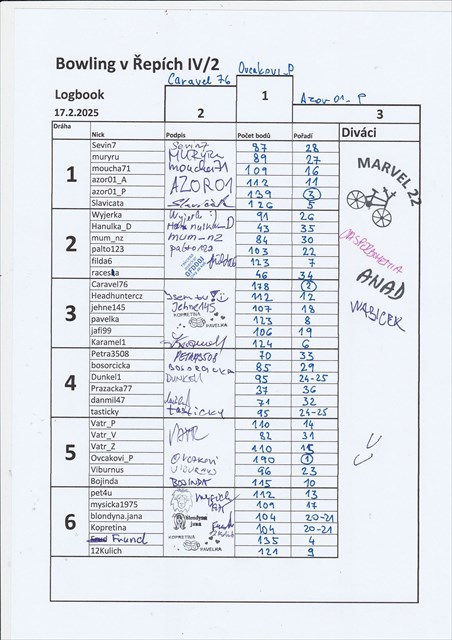 Bowling v Řepích IV/2
Caravel 76
Ovcakovi_P
Azor 01_P
Logbook
17.2.2025
2
1
3
Dráha Nick Podpis Počet bodů Pořadí Diváci
1
Sevin7 Sevin7 87 28
muryru MURYRU 89 27
moucha71 moucha71 109 16
azor01_A AZOR01 112 11
azor01_P 139 3
Slavicata 126 5
2
Wyjerka Wyjerka :) 91 26
Hanulka_D 43 35
mum_nz mum_nz 84 30
palto123 palto123 103 22
filda6 filda6 123 7
raceska 46 34
3
Caravel76 178 2
Headhuntercz 112 12
jehne145 Jehne145 107 18
pavelka KOPRETINA PAVELKA 123 8
jafi99 106 19
Karamel1 124 6
4
Petra3508 PETRA3508 70 33
bosorcicka BOSORCICKA 85 29
Dunkel1 DUNKEL1 95 24-25
Prazacka77 37 36
danmil47 71 32
tasticky tasticky 95 24-25
5
Vatr_P 110 14
Vatr_V VATR 82 31
Vatr_Z 110 15
Ovcakovi_P Ovcakovi 190 1
Viburnus Viburnus 96 23
Bojinda BOJINDA 115 10
6
pet4u 112 13
mysicka1975 109 17
blondyna.jana blondyna jana 104 20-21
Kopretina 104 20-21
Frund 135 4
12Kulich KOPRETINA PAVELKA 121 9
MARVEL 22
ANAD
WABICEK